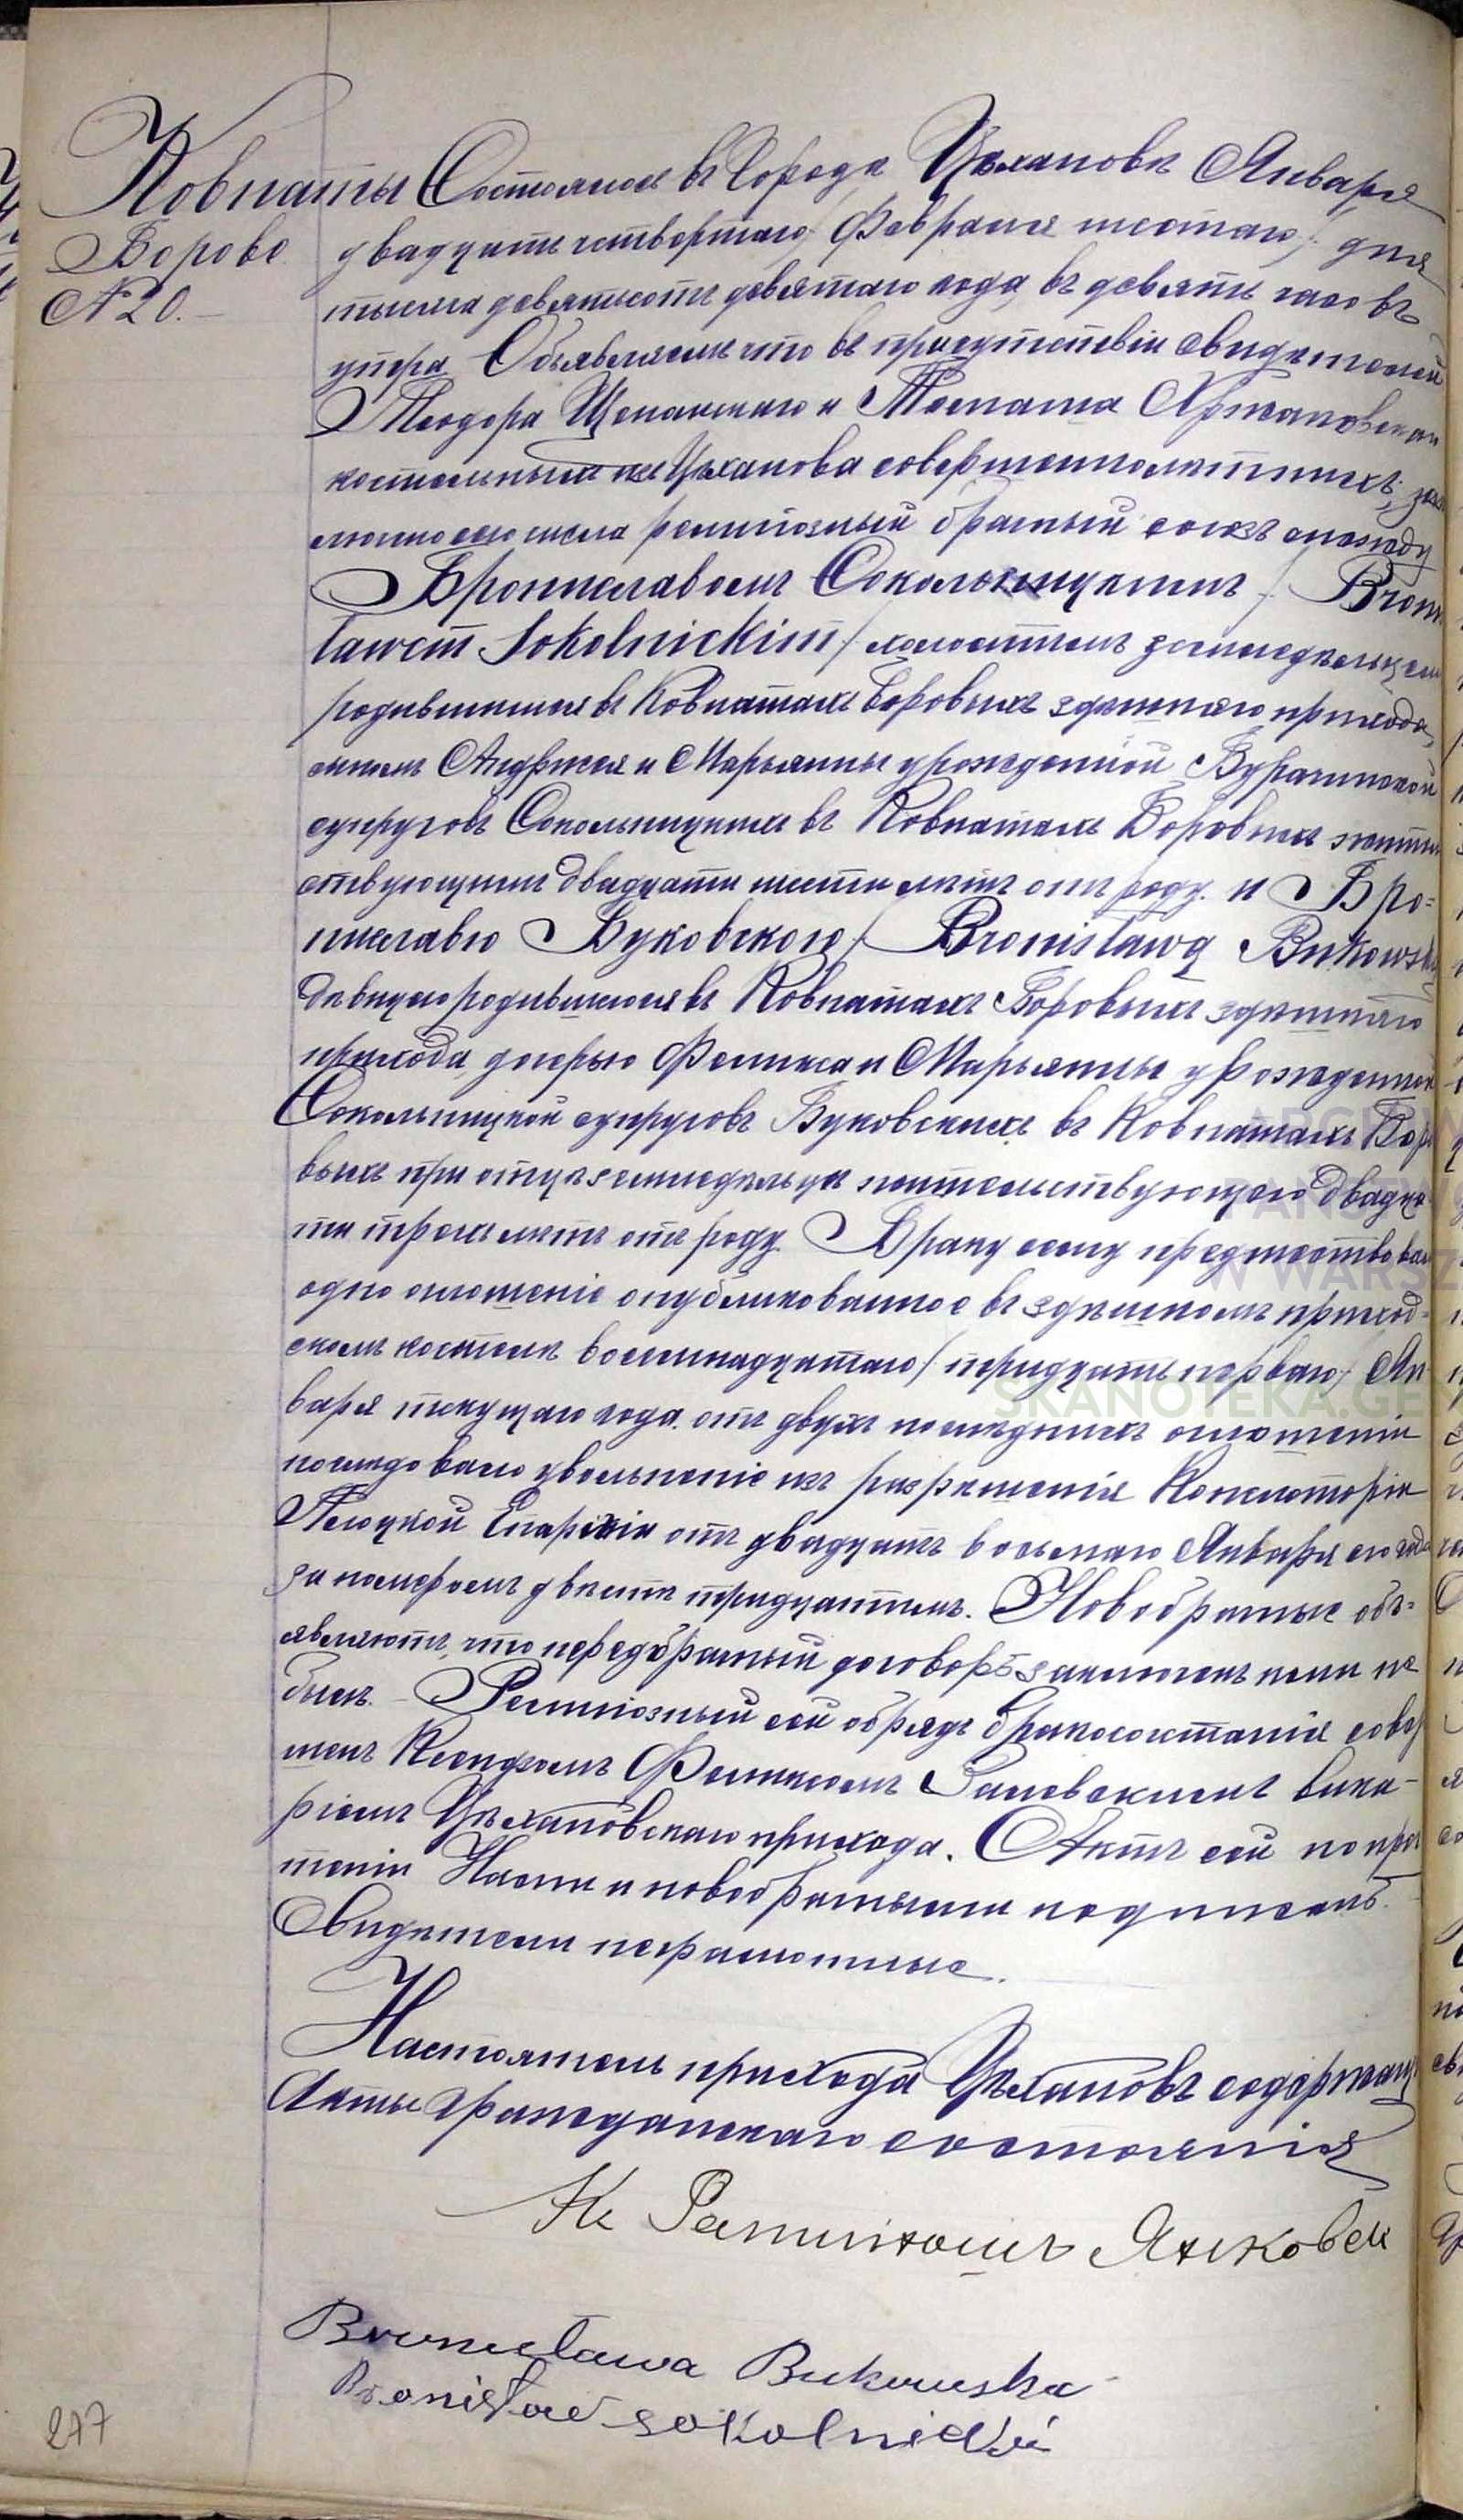 Ковнаты Состоялось въ Городѣ Цѣхановѣ Января
Борове двадцать четвертаго / Февраля шестаго / дня
№ 20. тысяча девятьсотъ девятаго года, въ девять часовъ
утра. Объявляемъ что въ присутствіи свидѣтелей
Теодора Щепанскаго и Томаша
костельныхъ изъ Цѣханова совершеннолѣтнихъ, зак
лючено сего числа религіозный брачный союзъ между
Брониславомъ Сокольницкимъ / Broni
sławem Sokolnickim / холостымъ земледѣльцемъ
родившимся въ Ковнатахъ Боровыхъ здѣшняго прихода,
сыномъ Андржея и Марьянны урожденной
супруговъ Сокольницкихъ въ Ковнатахъ Боровыхъ житель
ствующимъ двадцати шести лѣтъ отъ роду. и Бро=
ниславою Буковскою / Bronisławą Bukowską
дѣвицею родившеюся въ Ковнатахъ Боровыхъ здѣшняго
прихода, дочерью Феликса и Марьянны урожденной
Сокольницкой супруговъ Буковскихъ въ Ковнатахъ Боро
выхъ при отцѣ земледѣльцѣ жительствующею двадца
ти трехъ лѣтъ отъ роду. Браку сему предшествовало
одно оглашеніе опубликованное въ здѣшномъ приход=
скомъ костелѣ восемнадцатаго / тридцать перваго / Ян
варя текущаго года. отъ двухъ послѣднихъ оглашеніи
послѣдовало увольненіе изъ разрѣшенія Консисторіи
Плоцкой Епархіи отъ двадцать восьмаго Января сего года
за номеромъ двѣсти тридцатымъ. Новобрачные объ=
являютъ, что передбрачный договоръ заключенъ ними не
былъ. – Религіозный сей обрядъ бракосочетанія совер
шенъ Ксендзомъ Феликсомъ вика-
ріемъ Цѣхановскаго прихода. Актъ сей по проч
теніи Нами и новобрачными подписанъ.
Свидѣтели неграмотные.
Настоятель прихода Цѣхановъ содержащ
Акты гражданскаго состоянія
Кс Ремигіушъ Янковск
Bronisława Bukowska
Bronisław Sokolnicki
277
ARCHIW
PAŃSTWO
W WARSZ
SKANOTEKA.GE